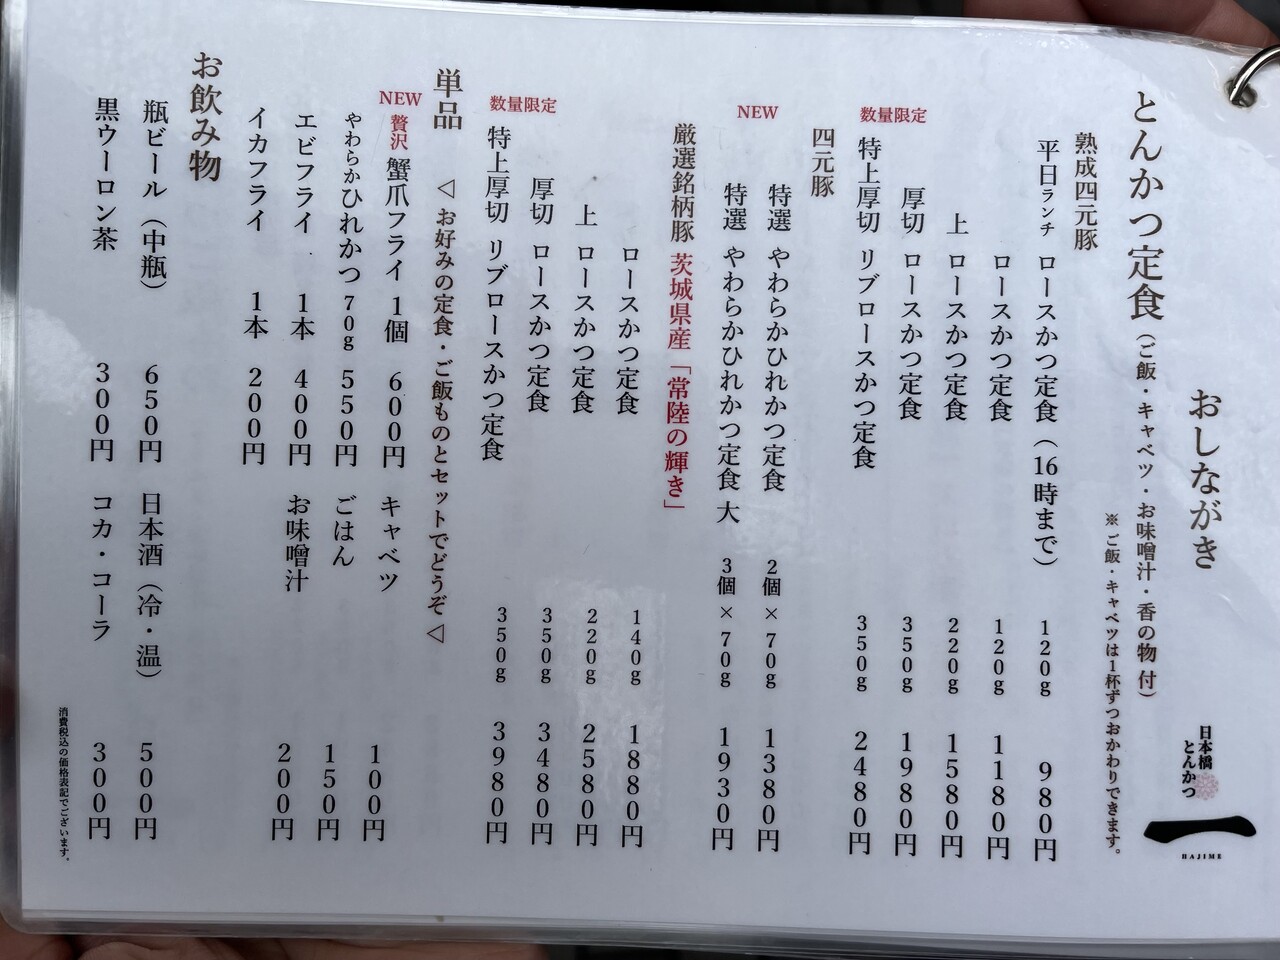 おしながき
日本橋
とんかつ
一
HAJIME
とんかつ定食（ご飯・キャベツ・お味噌汁・香の物 付）
※ご飯・キャベツは1杯ずつおかわりできます。
熟成四元豚
平日ランチ ロースかつ定食（16時まで） 120g 980円
ロースかつ定食 120g 1180円
上 ロースかつ定食 220g 1580円
厚切 ロースかつ定食 350g 1980円
数量限定
特上厚切 リブロースかつ定食 350g 2480円
四元豚
特選 やわらかひれかつ定食 2個×70g 1380円
NEW
特選 やわらかひれかつ定食 大 3個×70g 1930円
厳選銘柄豚 茨城県産「常陸の輝き」
ロースかつ定食 140g 1880円
上 ロースかつ定食 220g 2580円
厚切 ロースかつ定食 350g 3480円
数量限定
特上厚切 リブロースかつ定食 350g 3980円
単品 ◁ お好みの定食・ご飯ものとセットでどうぞ ◁
NEW 贅沢 蟹爪フライ 1個 600円 キャベツ 100円
やわらかひれかつ 70g 550円 ごはん 150円
エビフライ 1本 400円 お味噌汁 200円
イカフライ 1本 200円
お飲み物
瓶ビール（中瓶） 650円 日本酒（冷・温） 500円
黒ウーロン茶 300円 コカ・コーラ 300円
消費税込の価格表記でございます。